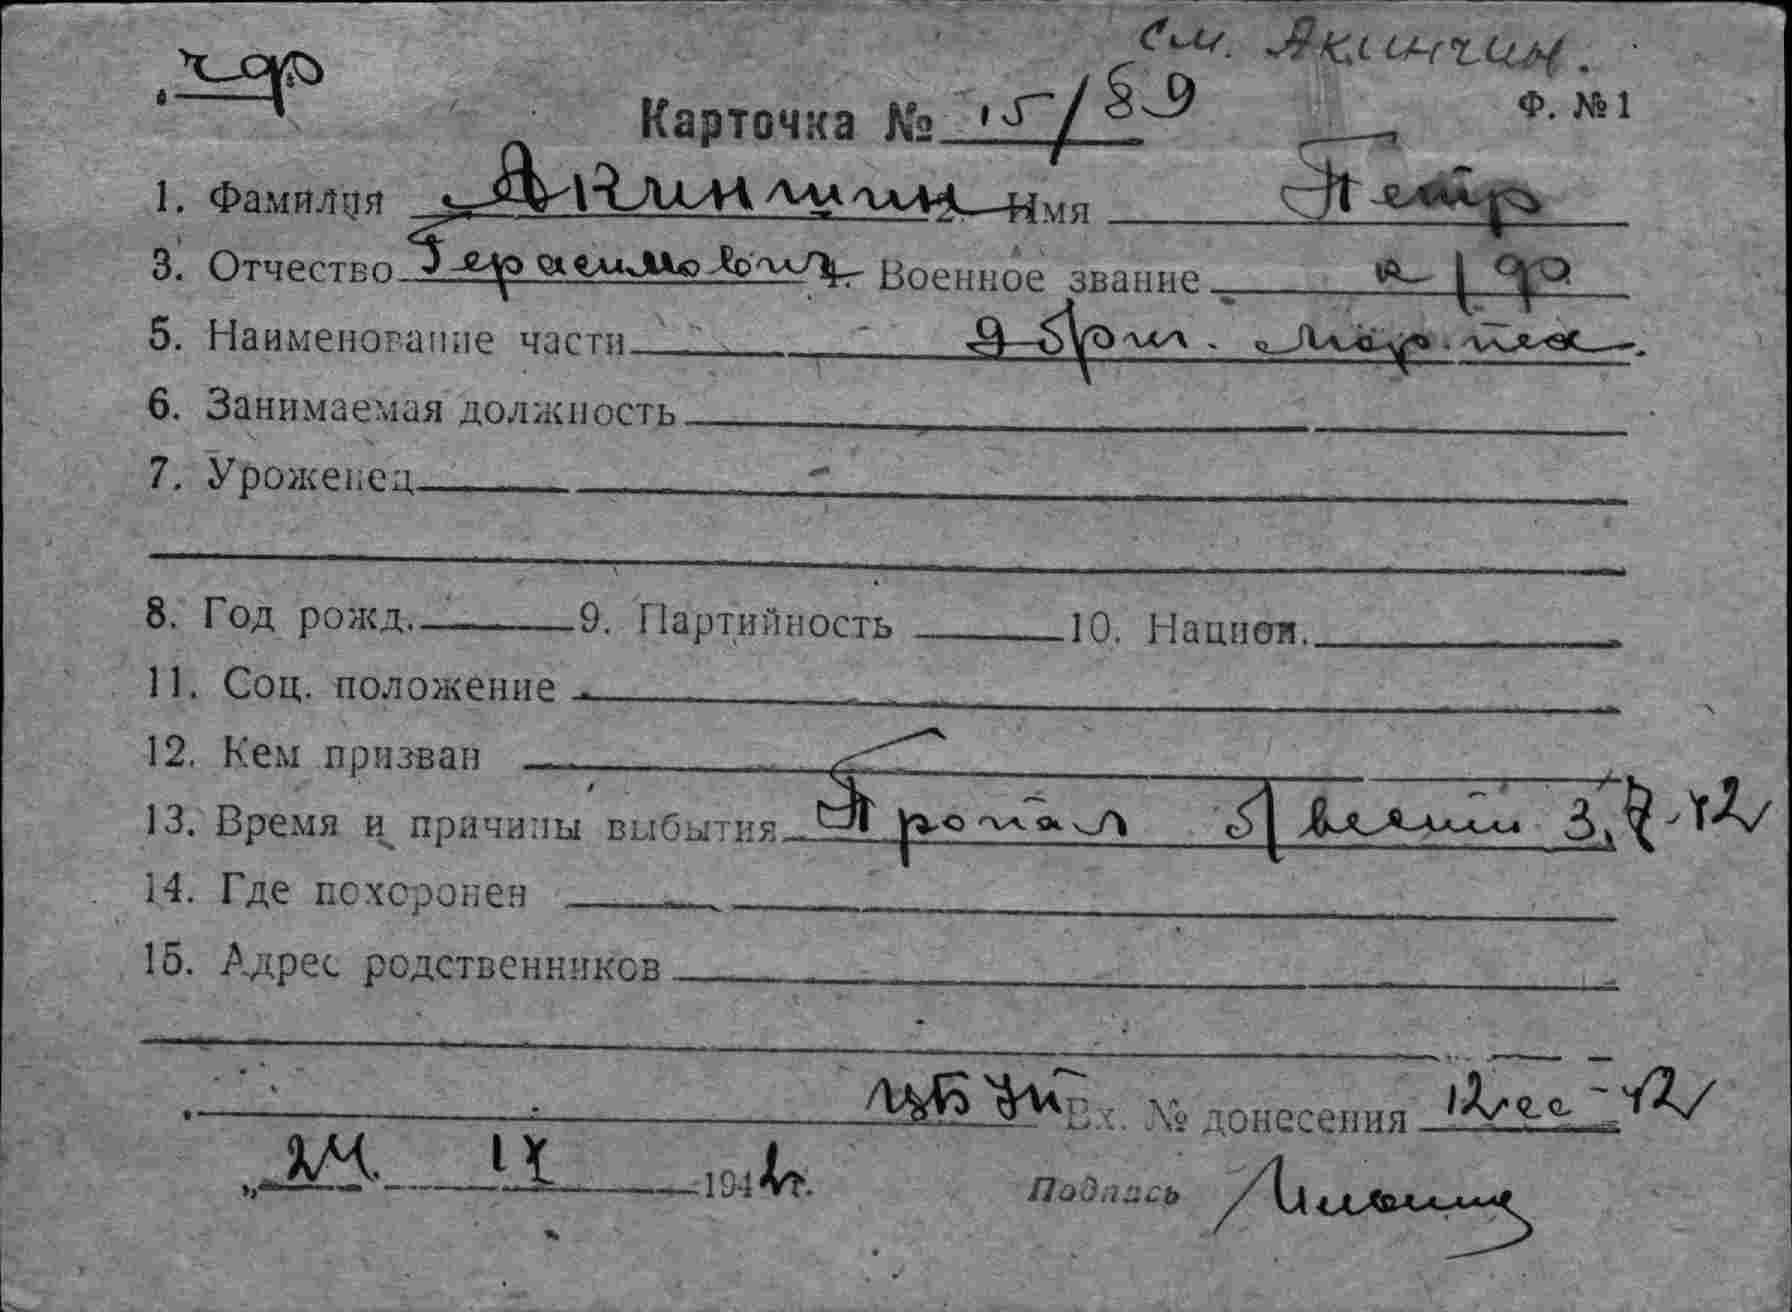 См. Якинчин.
чф
Карточка № 15/89
Ф. №1
1. Фамилия Акиншин 2. Имя Петр
3. Отчество Герасимович 4. Военное звание к/ф
5. Наименование части 9 бриг. мор. пех.
6. Занимаемая должность
7. Уроженец
8. Год рожд. 9. Партийность 10. Национ.
11. Соц. положение
12. Кем призван
13. Время и причины выбытия Пропал б/вести 3.9-42
14. Где похоронен
15. Адрес родственников
Вх. № донесения 12сс-42
„24. IX 1942г.
Подпись